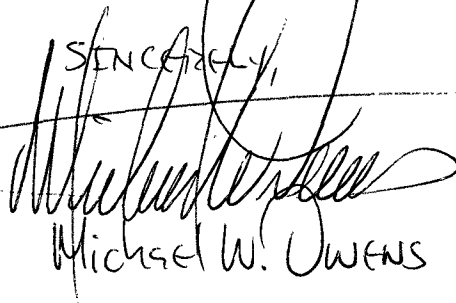 SINCERELY,
Michael W. Owens